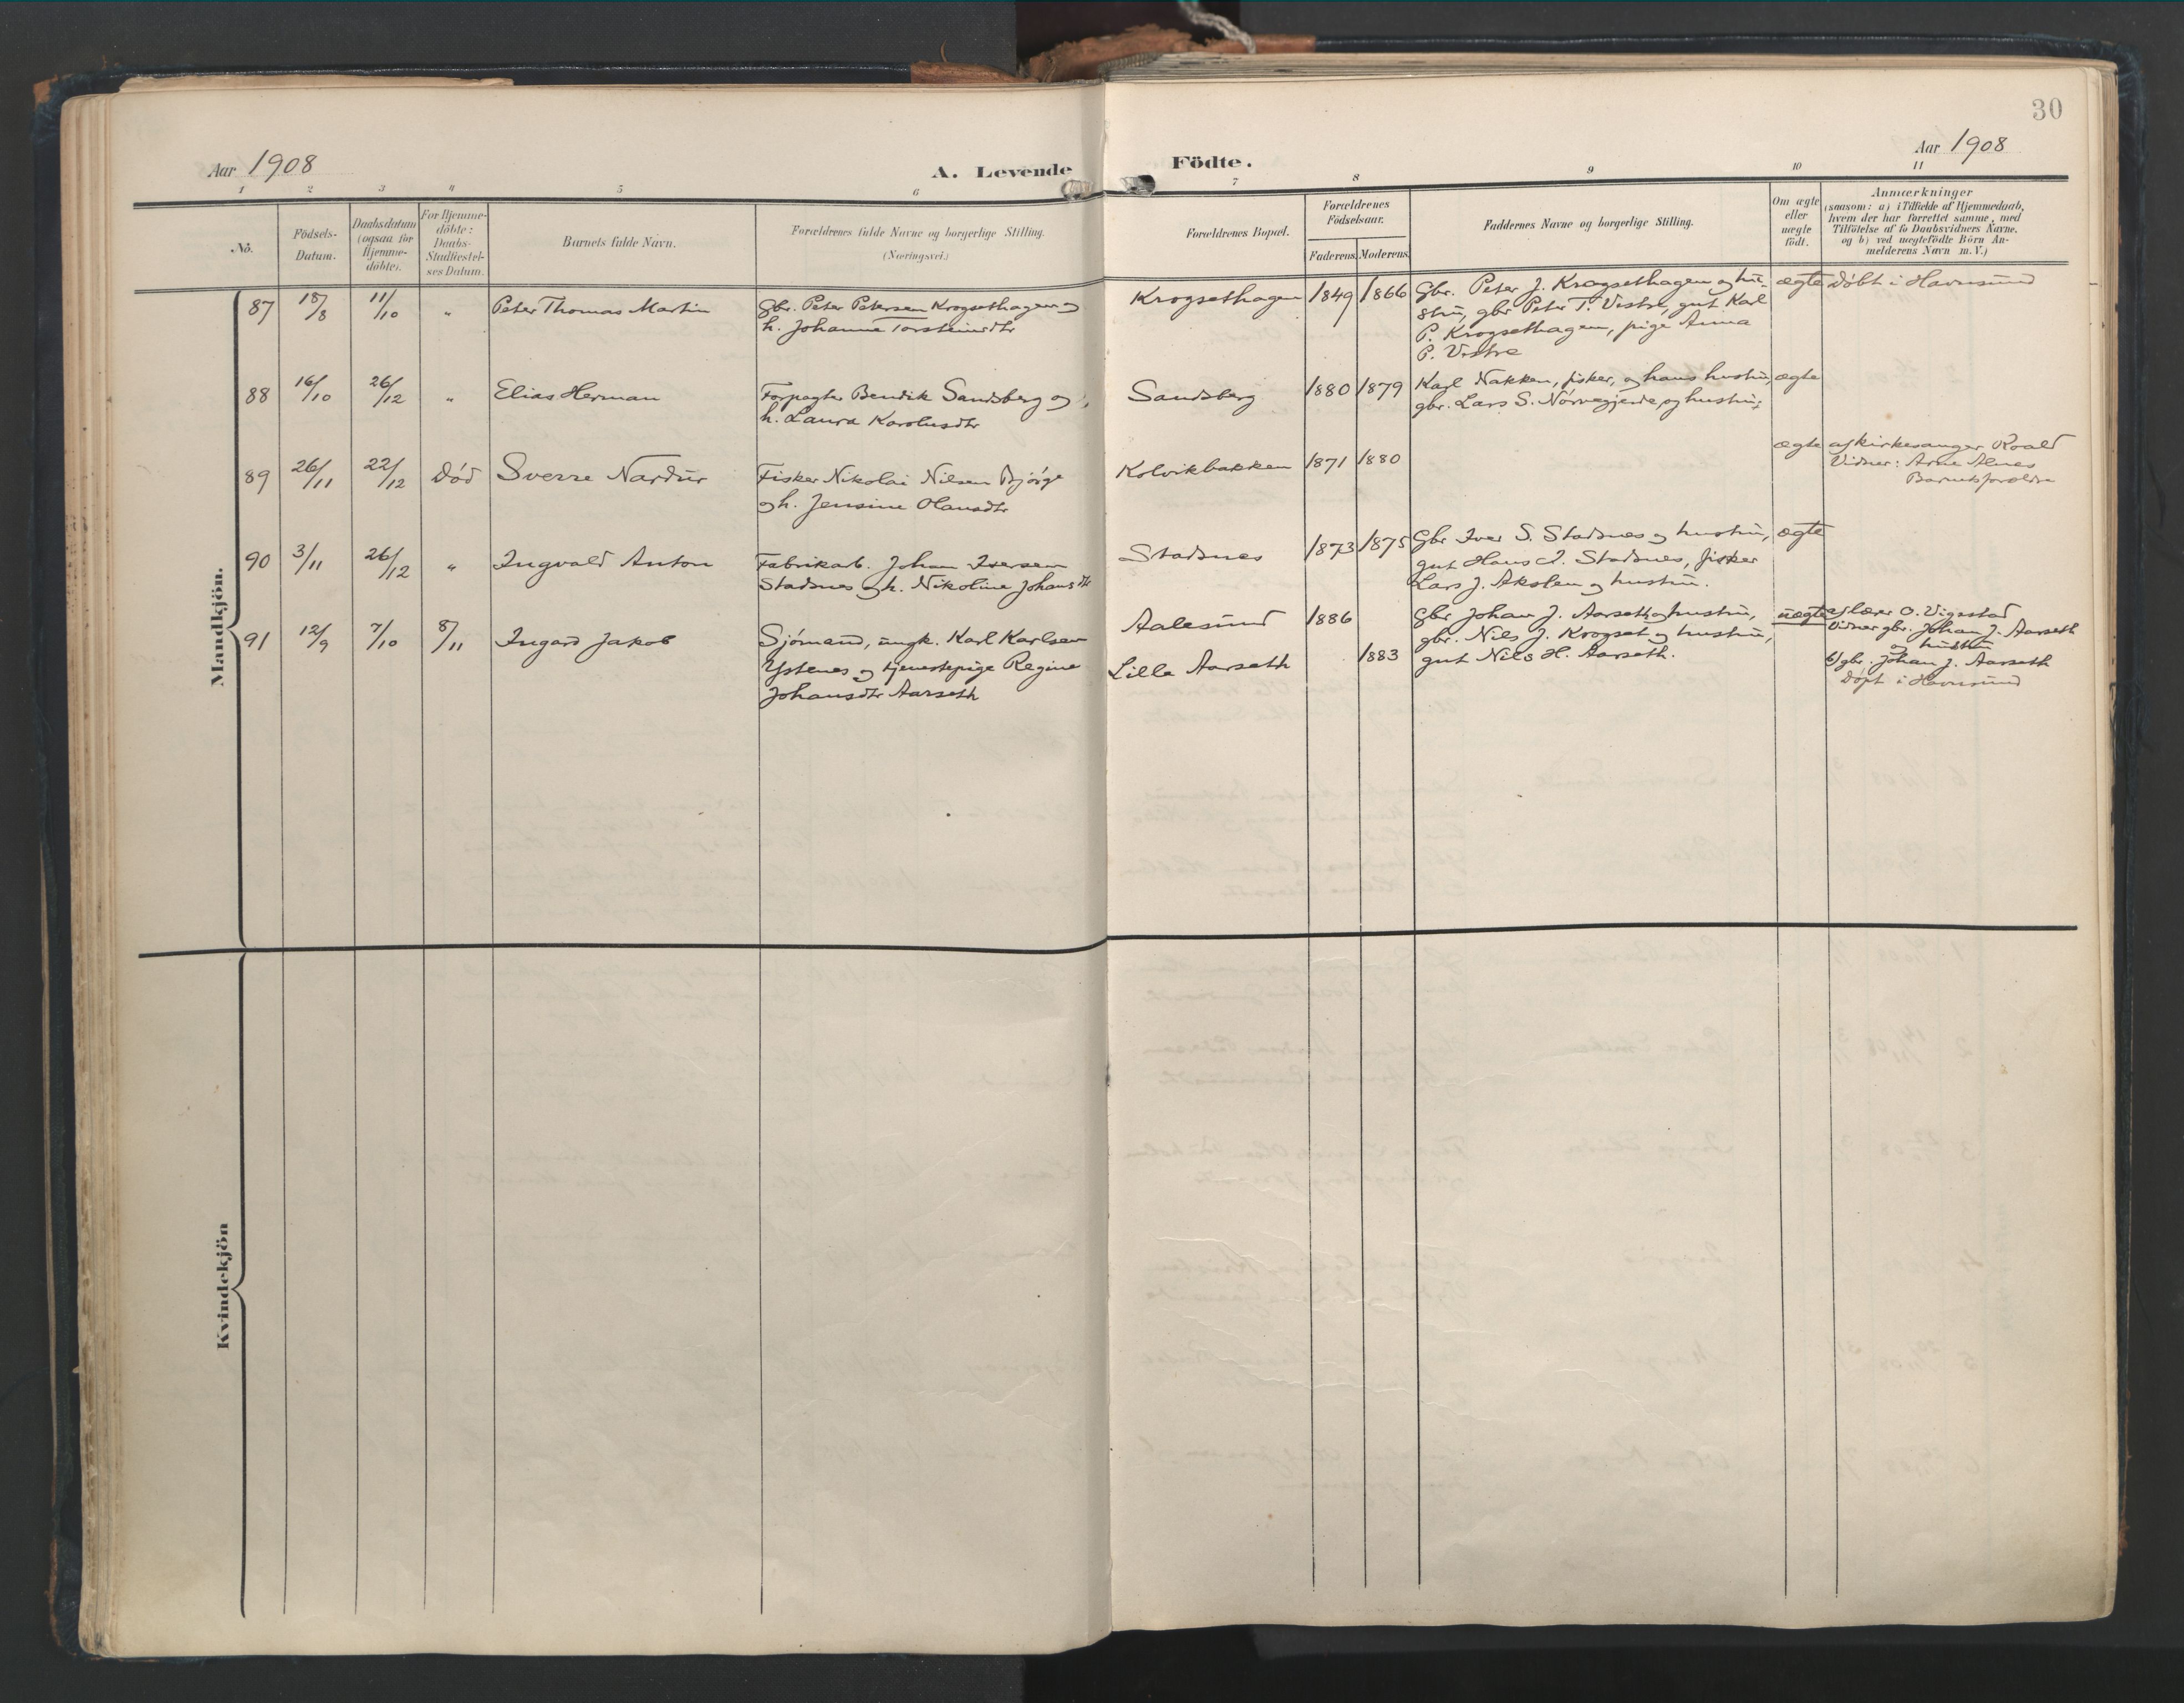 30
Aar 1908
A. Levende Födte.
Aar 1908
1 2 3 4 5 6 7 8 9 10 11
No.
Födsels-
Datum.
Daabsdatum
(ogsaa for
Hjemme-
döbte).
For Hjemme-
döbte:
Daabs-
Stadfæstel-
ses Datum.
Barnets fulde Navn.
Forældrenes fulde Navne og borgerlige Stilling.
(Næringsvei.)
Forældrenes Bopæl.
Forældrenes
Födselsaar.
Faderens. Moderens.
Faddernes Navne og borgerlige Stilling.
Om ægte
eller
uægte
födt.
Anmærkninger
(saasom: a) i Tilfælde af Hjemmedaab,
hvem der har forrettet samme, med
Tilföielse af to Daabsvidners Navne,
og b) ved uægtefödte Börn An-
melderens Navn m. V.)
Mandkjön.
87 18/8 11/10 " Peter Thomas Martin
Gbr. Peter Petersen Krogsethagen og
h. Johanne Torsteinsdtr
Krogsethagen 1849 1866
Gbr. Peter J. Krogsethagen og hu-
stru, gbr Peter T. Vestre, gut Karl
P. Krogsethagen, pige Anna
P. Vestre
ægte
Döbt i Havnsund
88 16/10 26/12 " Elias Herman
Forpagter Bendik Sandsberg og
h. Laura Karolusdtr
Sandsberg 1880 1879
Karl Nakken, fisker, og hans hustru,
gbr. Lars S. Nörvegjerde og hustru;
ægte
89 26/11 22/12 Död Sverre Nardur
Fisker Nikolai Nilsen Bjórge
og h. Jensine Hansdtr
Kolvikbakken 1871 1880
ægte
a/ kirkesanger Roald
Vidner: Arne Alnes
Barnets forældre
90 3/11 26/12 " Ingvald Anton
Fabrikarb. Johan Iversen
Stadsnes og h. Nikoline Johansdtr
Stadsnes 1873 1875
Gbr Iver S. Stadsnes og hustru,
gut Hans I. Stadsnes, fisker
Lars J. Akslen og hustru.
ægte
91 12/9 7/10 8/11 Ingard Jakob
Sjómand, ungk. Karl Karlsen
Ystenes og tjenestepige Regine
Johansdtr Aarseth
Aalesund 1886
Lille Aarseth 1883
Gbr Johan J. Aarseth og hustru,
gbr. Nils J. Krogset og hustru,
gut Nils H. Aarseth.
uægte
a/ lærer O. Vigestad
Vidner gbr. Johan J. Aarseth
og hustru
b/ gbr. Johan J. Aarseth
Döpt i Havnsund
Kvindekjön